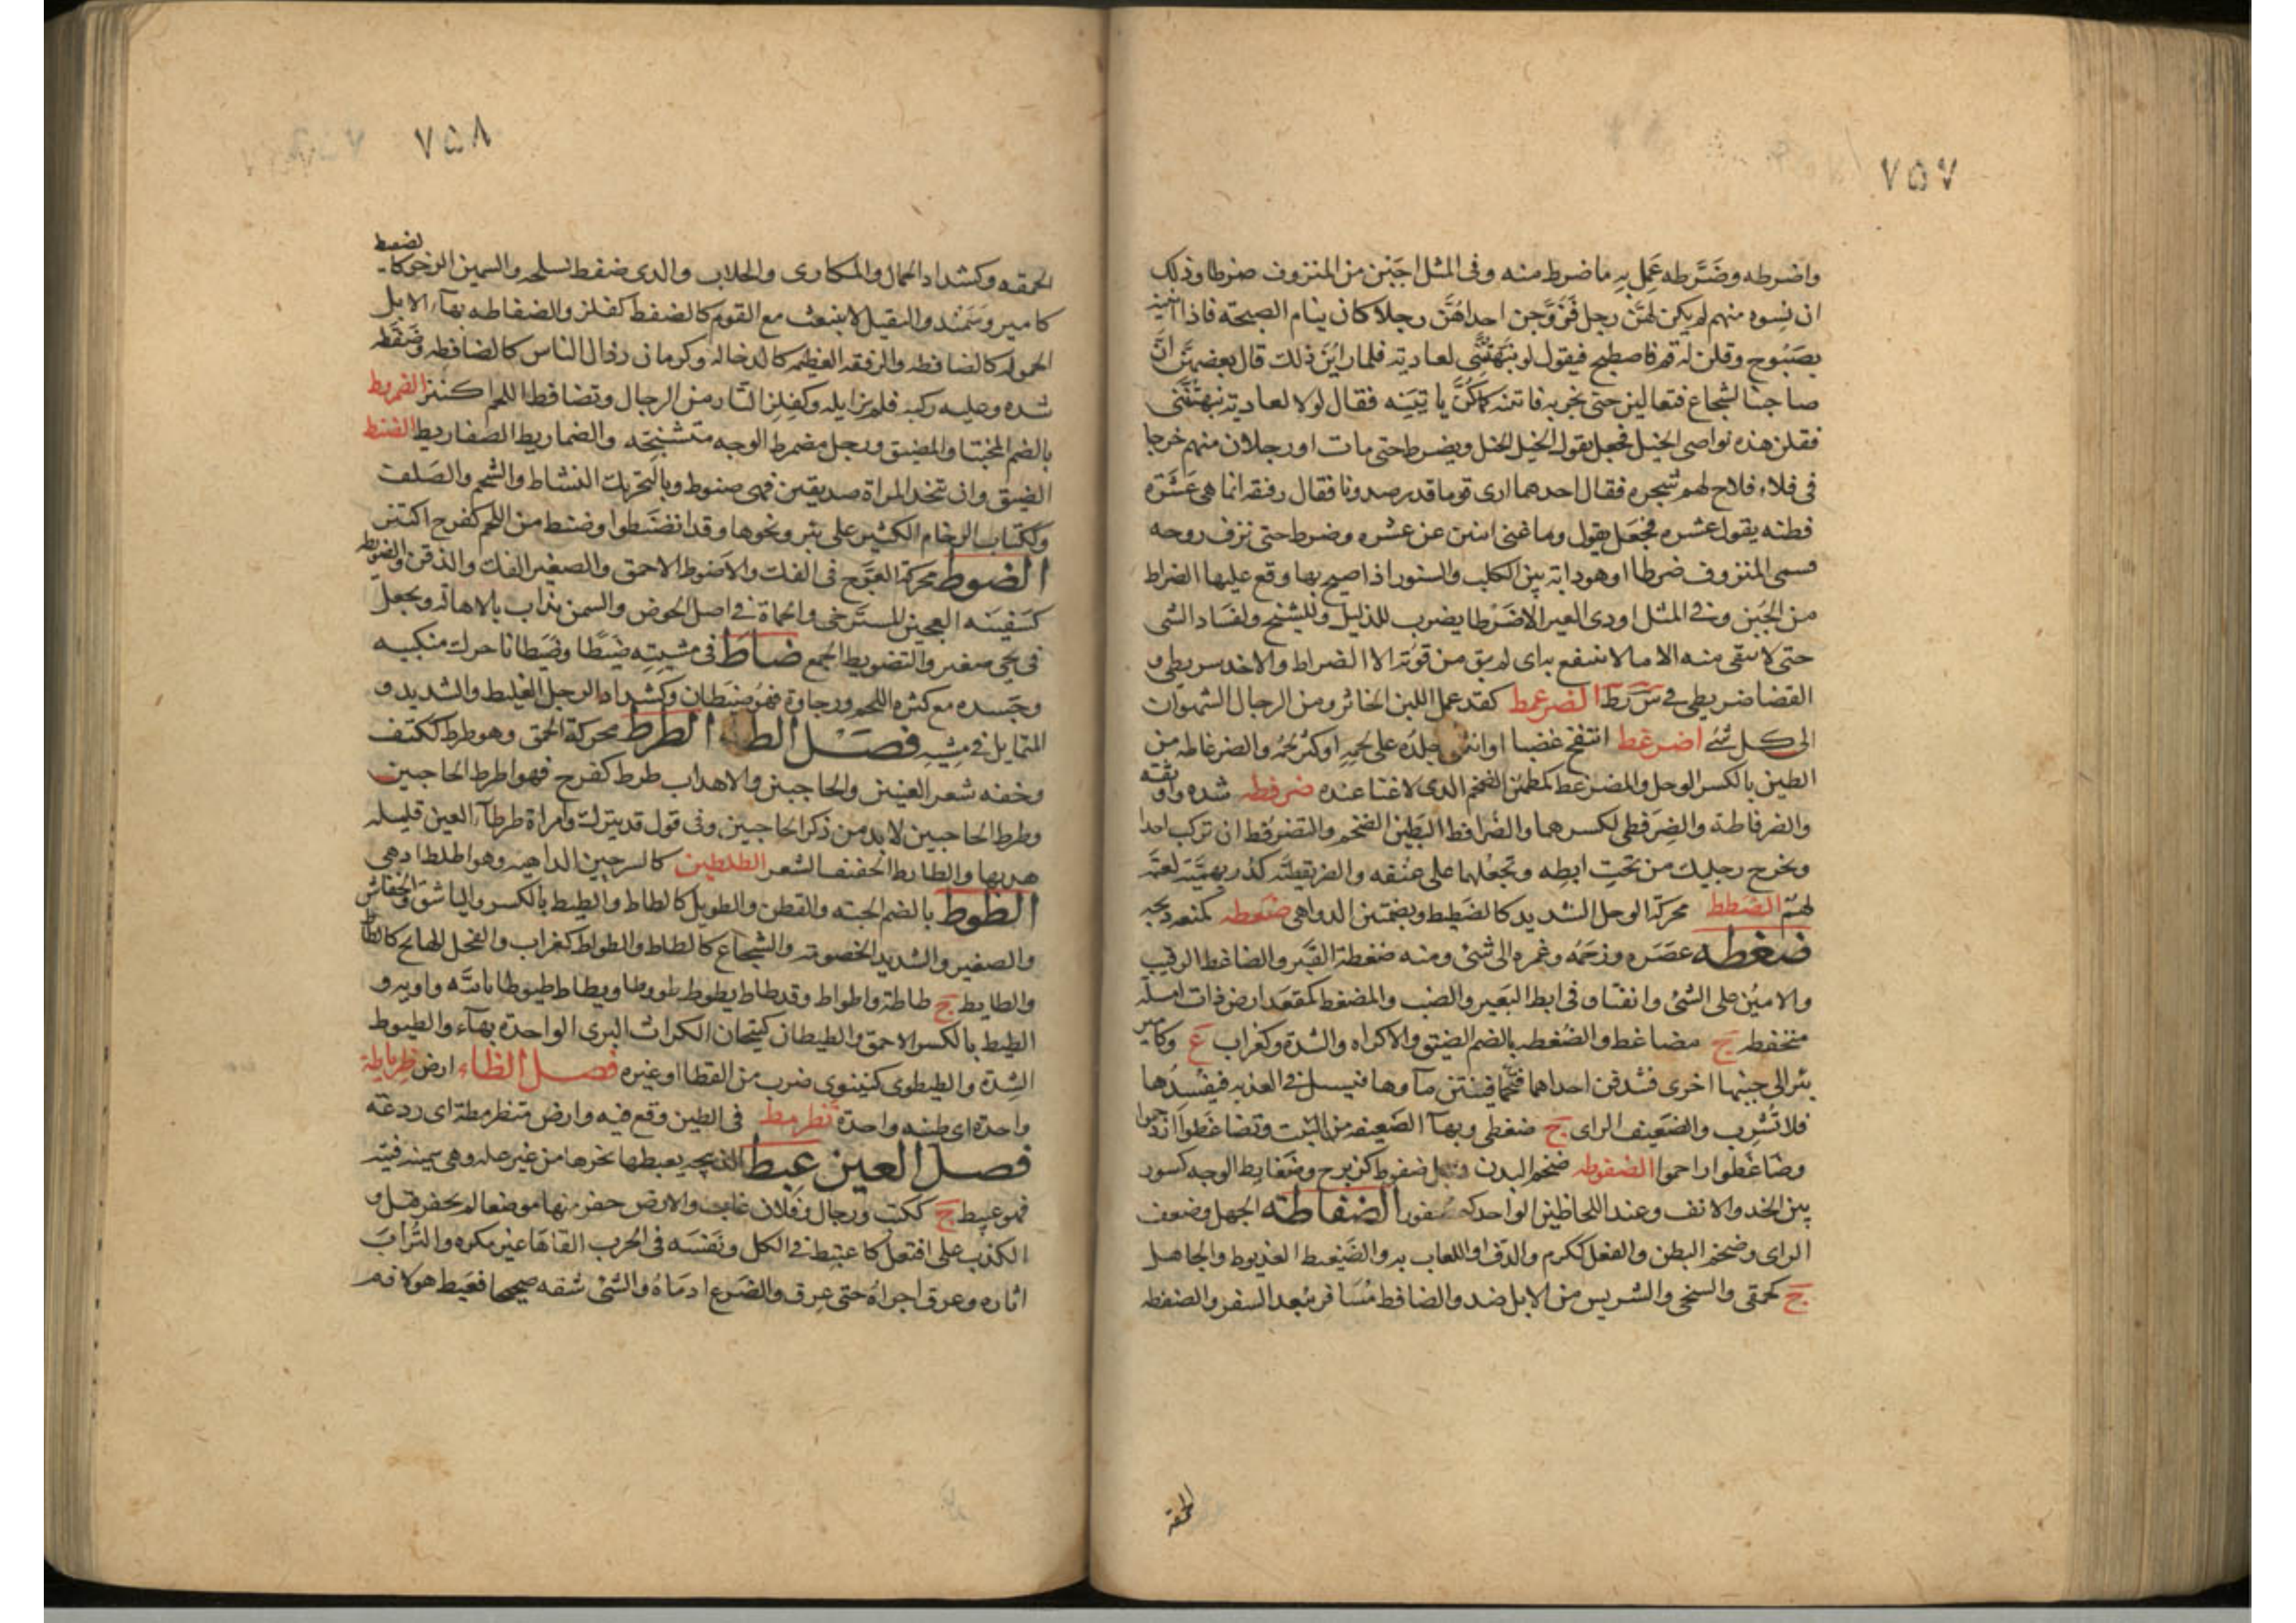 ٧٥٧
واضرطه وضَرَّطه عَمِل بِهِ ما ضرط منه وفى المثل اجَبَن من المنزوف ضرطا وذلك
ان نِسوه منهم لم يكن لهنَّ رجل فَزوَّجن احداهُنَّ رجلا كان ينام الصبحة فاذا اتينه
بصَبُوح وقلن له قم فاصطبح فيقول لو نبّهتنّى لعادية فلما راينَ ذلك قال بعضهنَّ انَّ
صاحبنا لشجاع فتعالين حتى نجربه فاتينه كما كُنَّ ياتيَنه فقال لولا لعادية نبهتُنَّنى
فقلن هذه نواصى الخيل فجعل يقول الخيل الخيل ويضرط حتى مات او رجلان منهم خرجا
فى فلاء فلاح لهم شجره فقال احدهما ارى قوما قد رصدونا فقال رفيقه انما هى عَشَرة
فظنه يقول عشره فجَعَل يقول وما غنى اثنين عن عشره وضرط حتى نزف روحه
فسمى المنزوف ضرطا او هو دابة بين الكلب والسنور اذا صيح بها وقع عليها الضراط
من الجَبن وفى المثل اودى العير الا ضَرْطا يضرب للذليل وللشيخ ولفساد الشى
حتى لا يبقى منه الا ما لا ينتفع به اى لم يبق من قوته الا الضراط والاخذ سريطى و
القضا ضريطى فى س ر ط الضرعمط كقذعمل اللبن الخاثر ومن الرجال الشهوان
الى كل شئ اضرغط انتفخ غضبا او انثنى جلدُه على لحمِهِ او كثر لحمُه والضرغاطه من
الطين بالكسر الوحل والمضرغط كمطمئن الضخم الذى لا غنا عنده ضرفطه شده واوثقه
والضرفاطة والضِرَفطى لكسرهما والضُرافط البَطين الضخم والتضرفط ان تركب احدا
وتخرج رجليك من تحت ابطِه وتجعَلهما على عنُقه والضريفطيَّه كدُريهميَّة لعبَّة
لهمّ الضَطط محركة الوحل الشديد كالضَطيط وبضمّتين الدواهى ضَعَطه كمنعه ذبحه
ضغطه عَصَره وزحَمَه وغمره الى شئ ومنه ضغطة القَبر والضاغط الرقيب
والامين على الشئ وانفتاق فى ابط البَعير والضب والمضغط كمقعَد ارض ذات امسلة
منخفطه ج مضاغط والضُغطه بالضم الضيق والاكراه والشدة وكغراب ع وكامير
بئر الى جنبها اخرى فتندفن احداهما فتَحمأ فينتن مآوها فيسيل فى العذبه فيفسدها
فلا تُشرِب والضَعيف الراى ج ضغطى وبهآ الضعيفه من النبت وتضاغَطوا ازدحموا
وضاغَطوا زاحموا الضفوطه ضخم البدن ورجل ضفرط كزبرج وضفاريط الوجه كسور
بين الخد والانف وعند اللحاظين الواحد كعصفور الضفاطه الجهل وضعف
الراى وضخم البطن والفعل ككرم والدف او اللعاب به والضَيفط العذيوط والجاهل
ج كحمقى والسخى والشريس من الابل ضد والضافط مُسَافر يبُعد السفر والضفطه
الحمقه
٧٥٨
الحمقه وكشداد الجمال والمكارى والجلاب والذى ضفط بسلحه والسمين الرخو كا لضفيط
كامير وسَمَند والثقيل لا ينبعث مع القوم كالضفط كفلز والضفاطه بهآء الابل
الحموله كالضافطه والرفقه العظيمه كالدجاله وكرمانى رذال الناس كالضافطه وضَفَطه
شده وعليه ركبه فلم يزايله وكفِلِزّ التار من الرجال وتضافط اللحم اكتنز الضمروط
بالضم المختبا والمضيق ورجل مضمرط الوجه متشنجه والضماريط الضفاريط الضنط
الضيق وان تتخذ المراة صديقين فهى ضنوط وبالتحريك النشاط والشحم والصَلف
وككتاب الزحام الكثير على بئر ونحوها وقد انضنَطوا وضنط من اللحم كفرح اكتنز
الضوط محركة العَوَج فى الفك والاضوط الاحمق والصغير الفك والذقن والضويطه
كَسَفينَه العجين المسترخى والحماة فى اصل الحوض والسمن يذاب بالاهالة ويجعل
فى نحى صغير والتضويط الجمع ضاط فى مشيته ضيطًا وضَيَطانا حرك منكبيه
وجَسده مع كثره اللحم ورجاوة فهو ضيطان وكشداد الرجل الغليظ والشديد و
المتمايل فى مشيه فصل الطاء الطرط محركة الحمق وهو طرط ككتف
وخفه شعر العينين والحاجبين والاهداب طرط كفرح فهو اطرط الحاجبين
وطرط الحاجبين لا بد من ذكر الحاجبين وفى قول قد يترك وامراة طرطآء العين قليله
هدبها والطارط الخفيف الشعر الطلطين كالسرجين الداهيه وهو اطلط ادهى
الطوط بالضم الحية والقطن والطويل كالطاط والطيط بالكسر والباشق والخفاش
والصغير والشديد الخصومه والشجاع كالطاط والطواط كغراب والفحل الهائج كالطاط
والطايط ج طاطة واطواط وقد طاط يطوط طووطا ويطاط طيوطا بآئيه واويه و
الطِيط بالكسر الاحمق والطيطان كتيجان الكراث البرى الواحدة بهآء والطيوط
الشدة والطيطوى كنينوى ضرب من القطا او غيره فصل الظاء ارض ظرياطة
واحدة اى طينه واحدة تظرمط فى الطين وقع فيه وارض متظرمطة اى ردغة
فصل العين عبط الذبيحه يعبطها نحرها من غير علة وهى سمينة فتيه
فهو عبيط ج ككتب ورجال وفلان غاب والارض حفر منها موضعا لم يحفر قبل و
الكذب على افتعل كاعتبط فى الكل ونَفسَه فى الحرب القاها غير مكره والتُراب
اثاره وعرق اجراهُ حتى عرِق والضَرع ادمَاهُ والشئ شقه صحيحا فعَبط هو لازم